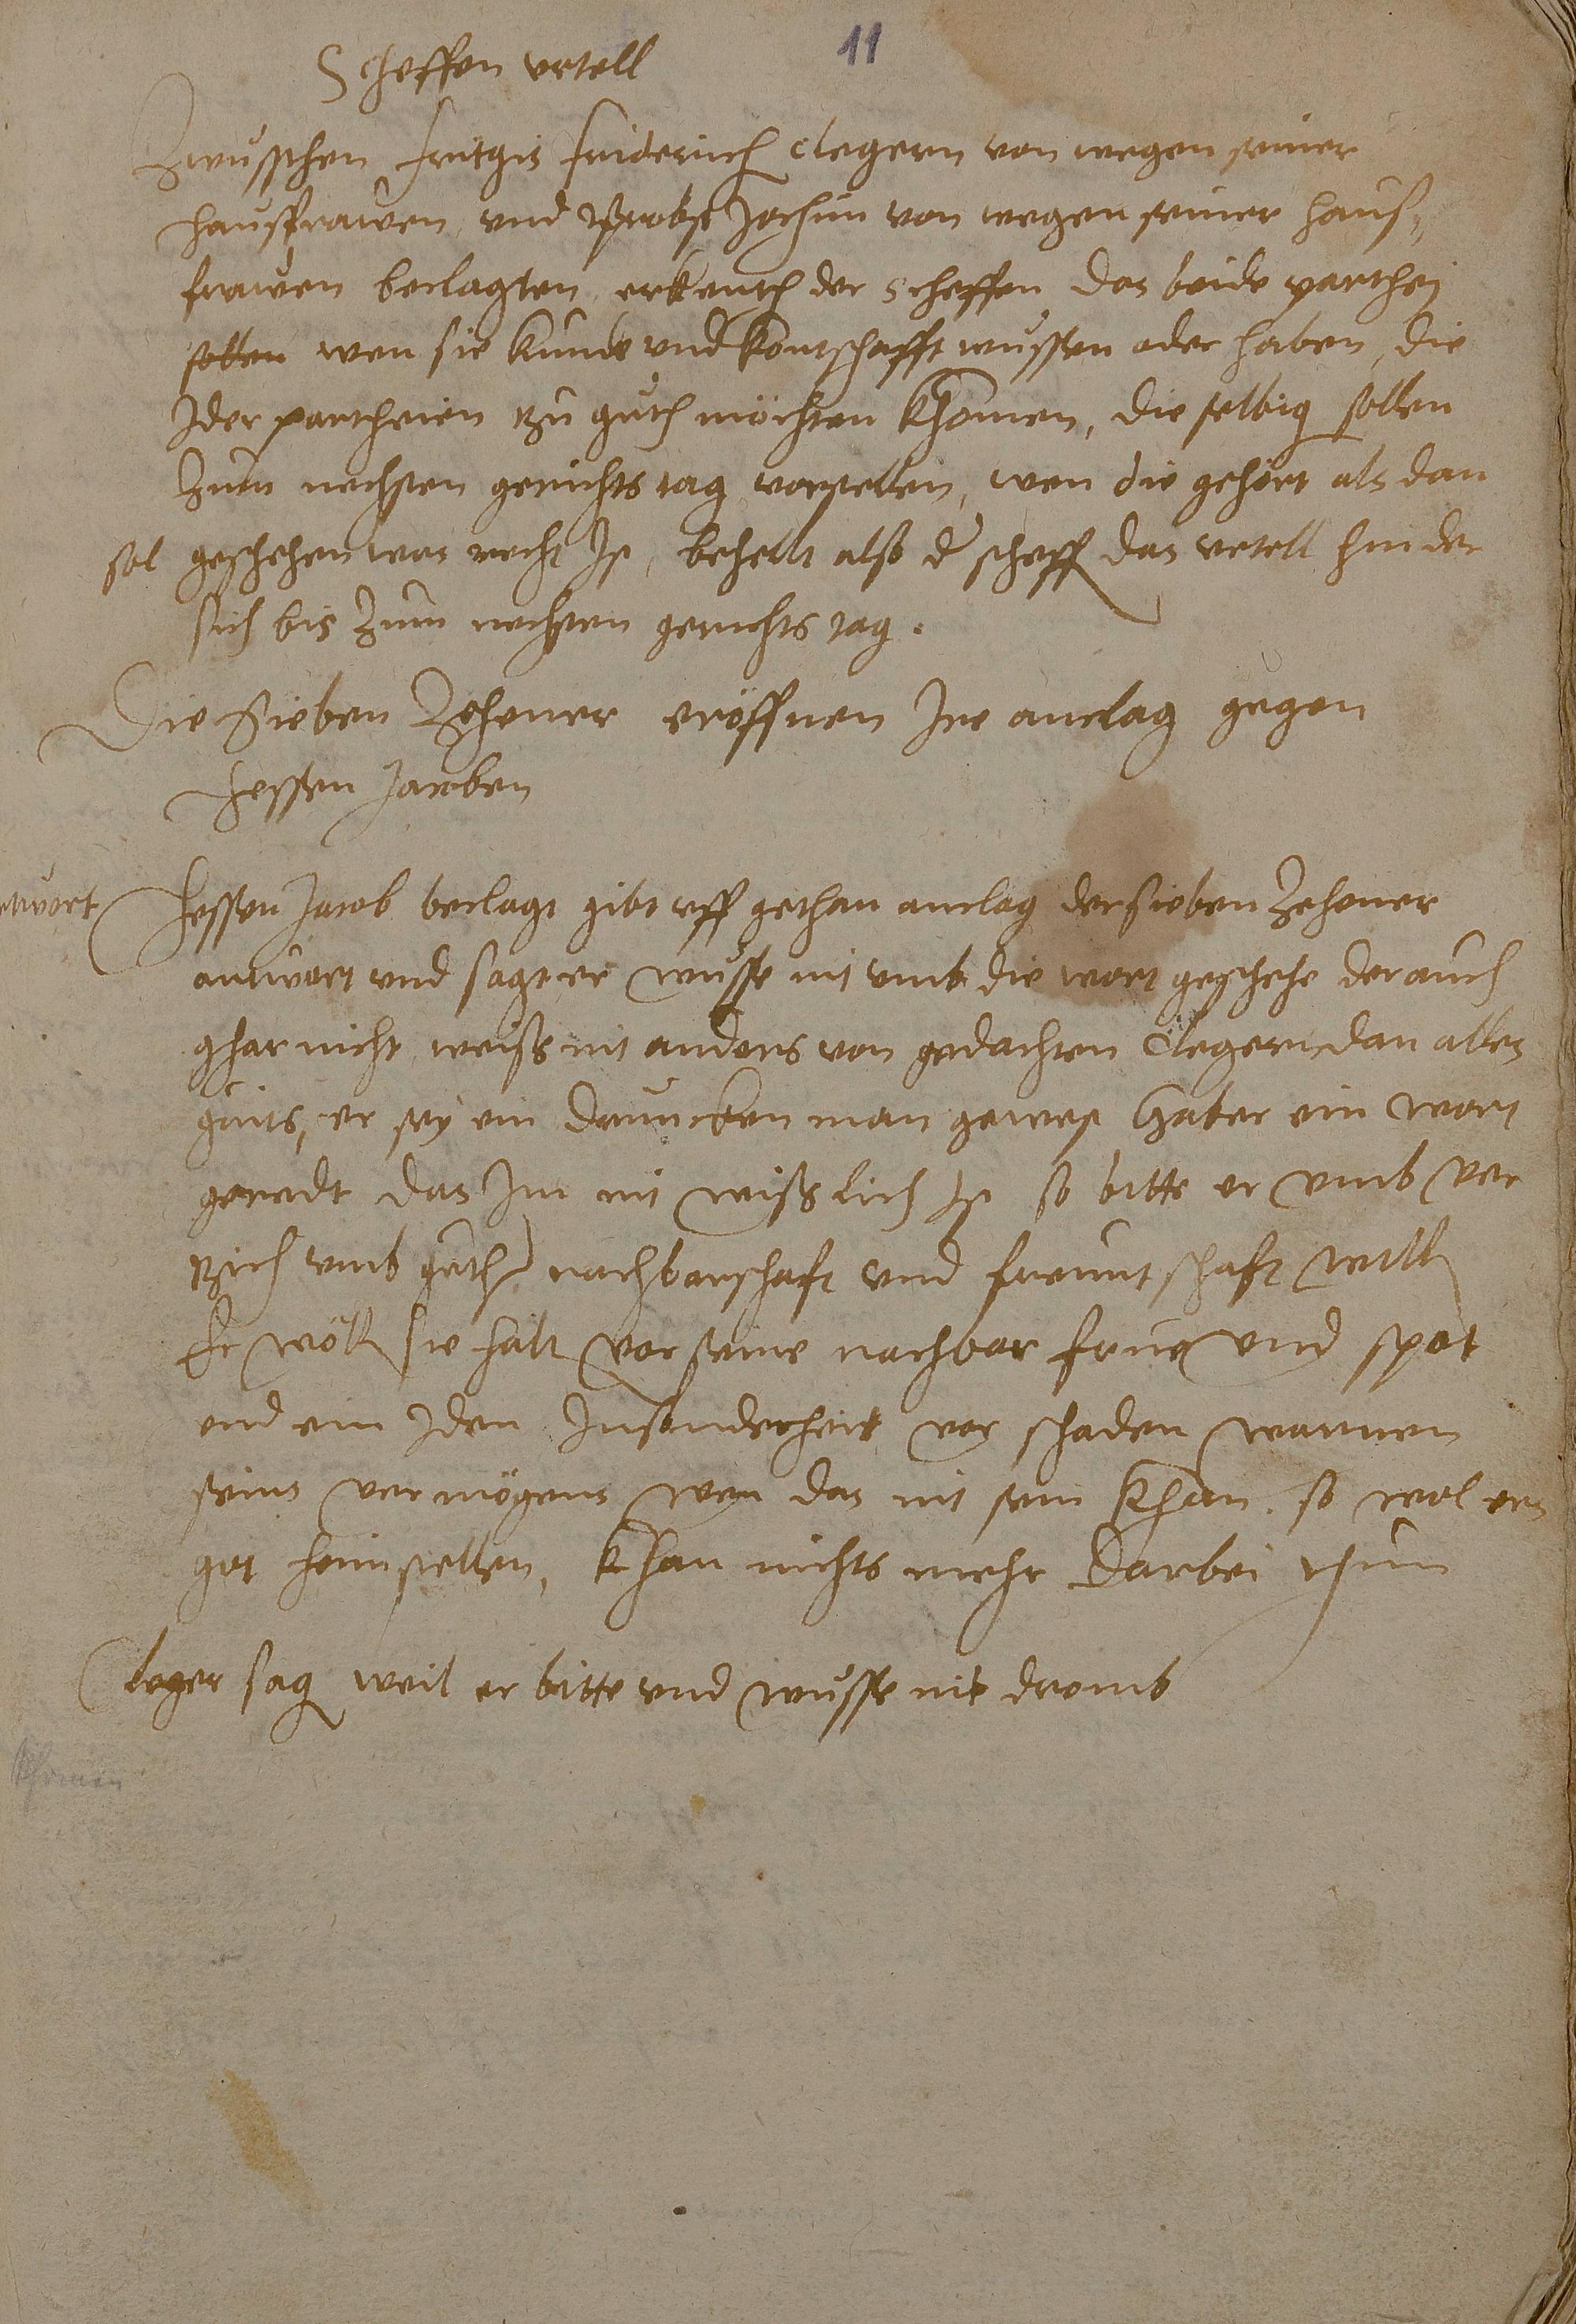 11
Scheffen urtell
Zwusschen fritgis friderich clegern von wegen seiner
hausfrawen und Probst Jochim von wegen seiner haus„
frawen beclagten, erkentt der scheffen das beide parthei
sollen wen sie kunde und kontschafft wussen oder haben, die
Jder partheien zu guth möchten khomen, die selbig sollen
Zum nechsten gerichts tag vorstellen, wen die gehört als dan
sol geschehen was recht Jst, behellt also d scheff das urtell hinder
sich bis Zum nechsten gerichts tag.
Die Sieben Zehener eröffnen Jre anclag gegen
Hessen Jacoben
ntwort Hessen Jacob beclagt gibt uff gethan anclag der sieben Zehener
antwort und sagt er wusse nit umb die wort geschehe der auch
ghar nicht, weiß nit anders von gedachten Clegern dan alles
guts, er sey ein druncken man gewest hab er ein wort
geredt das Jm nit wißlich Jst so bitte er umb ver
zich umb guth nachbarschaft und freuntschaft will
Er wöll sie halt vor seine nachbar frue und spat
und ein Jden Jnsonderheit vor schaden warnen
seins vermögens wen das nit sein khan. so wol ers
got heimstellen, khan nichts mehr darbei thun
Cleger sag weil er bitte und wusse nit dromb